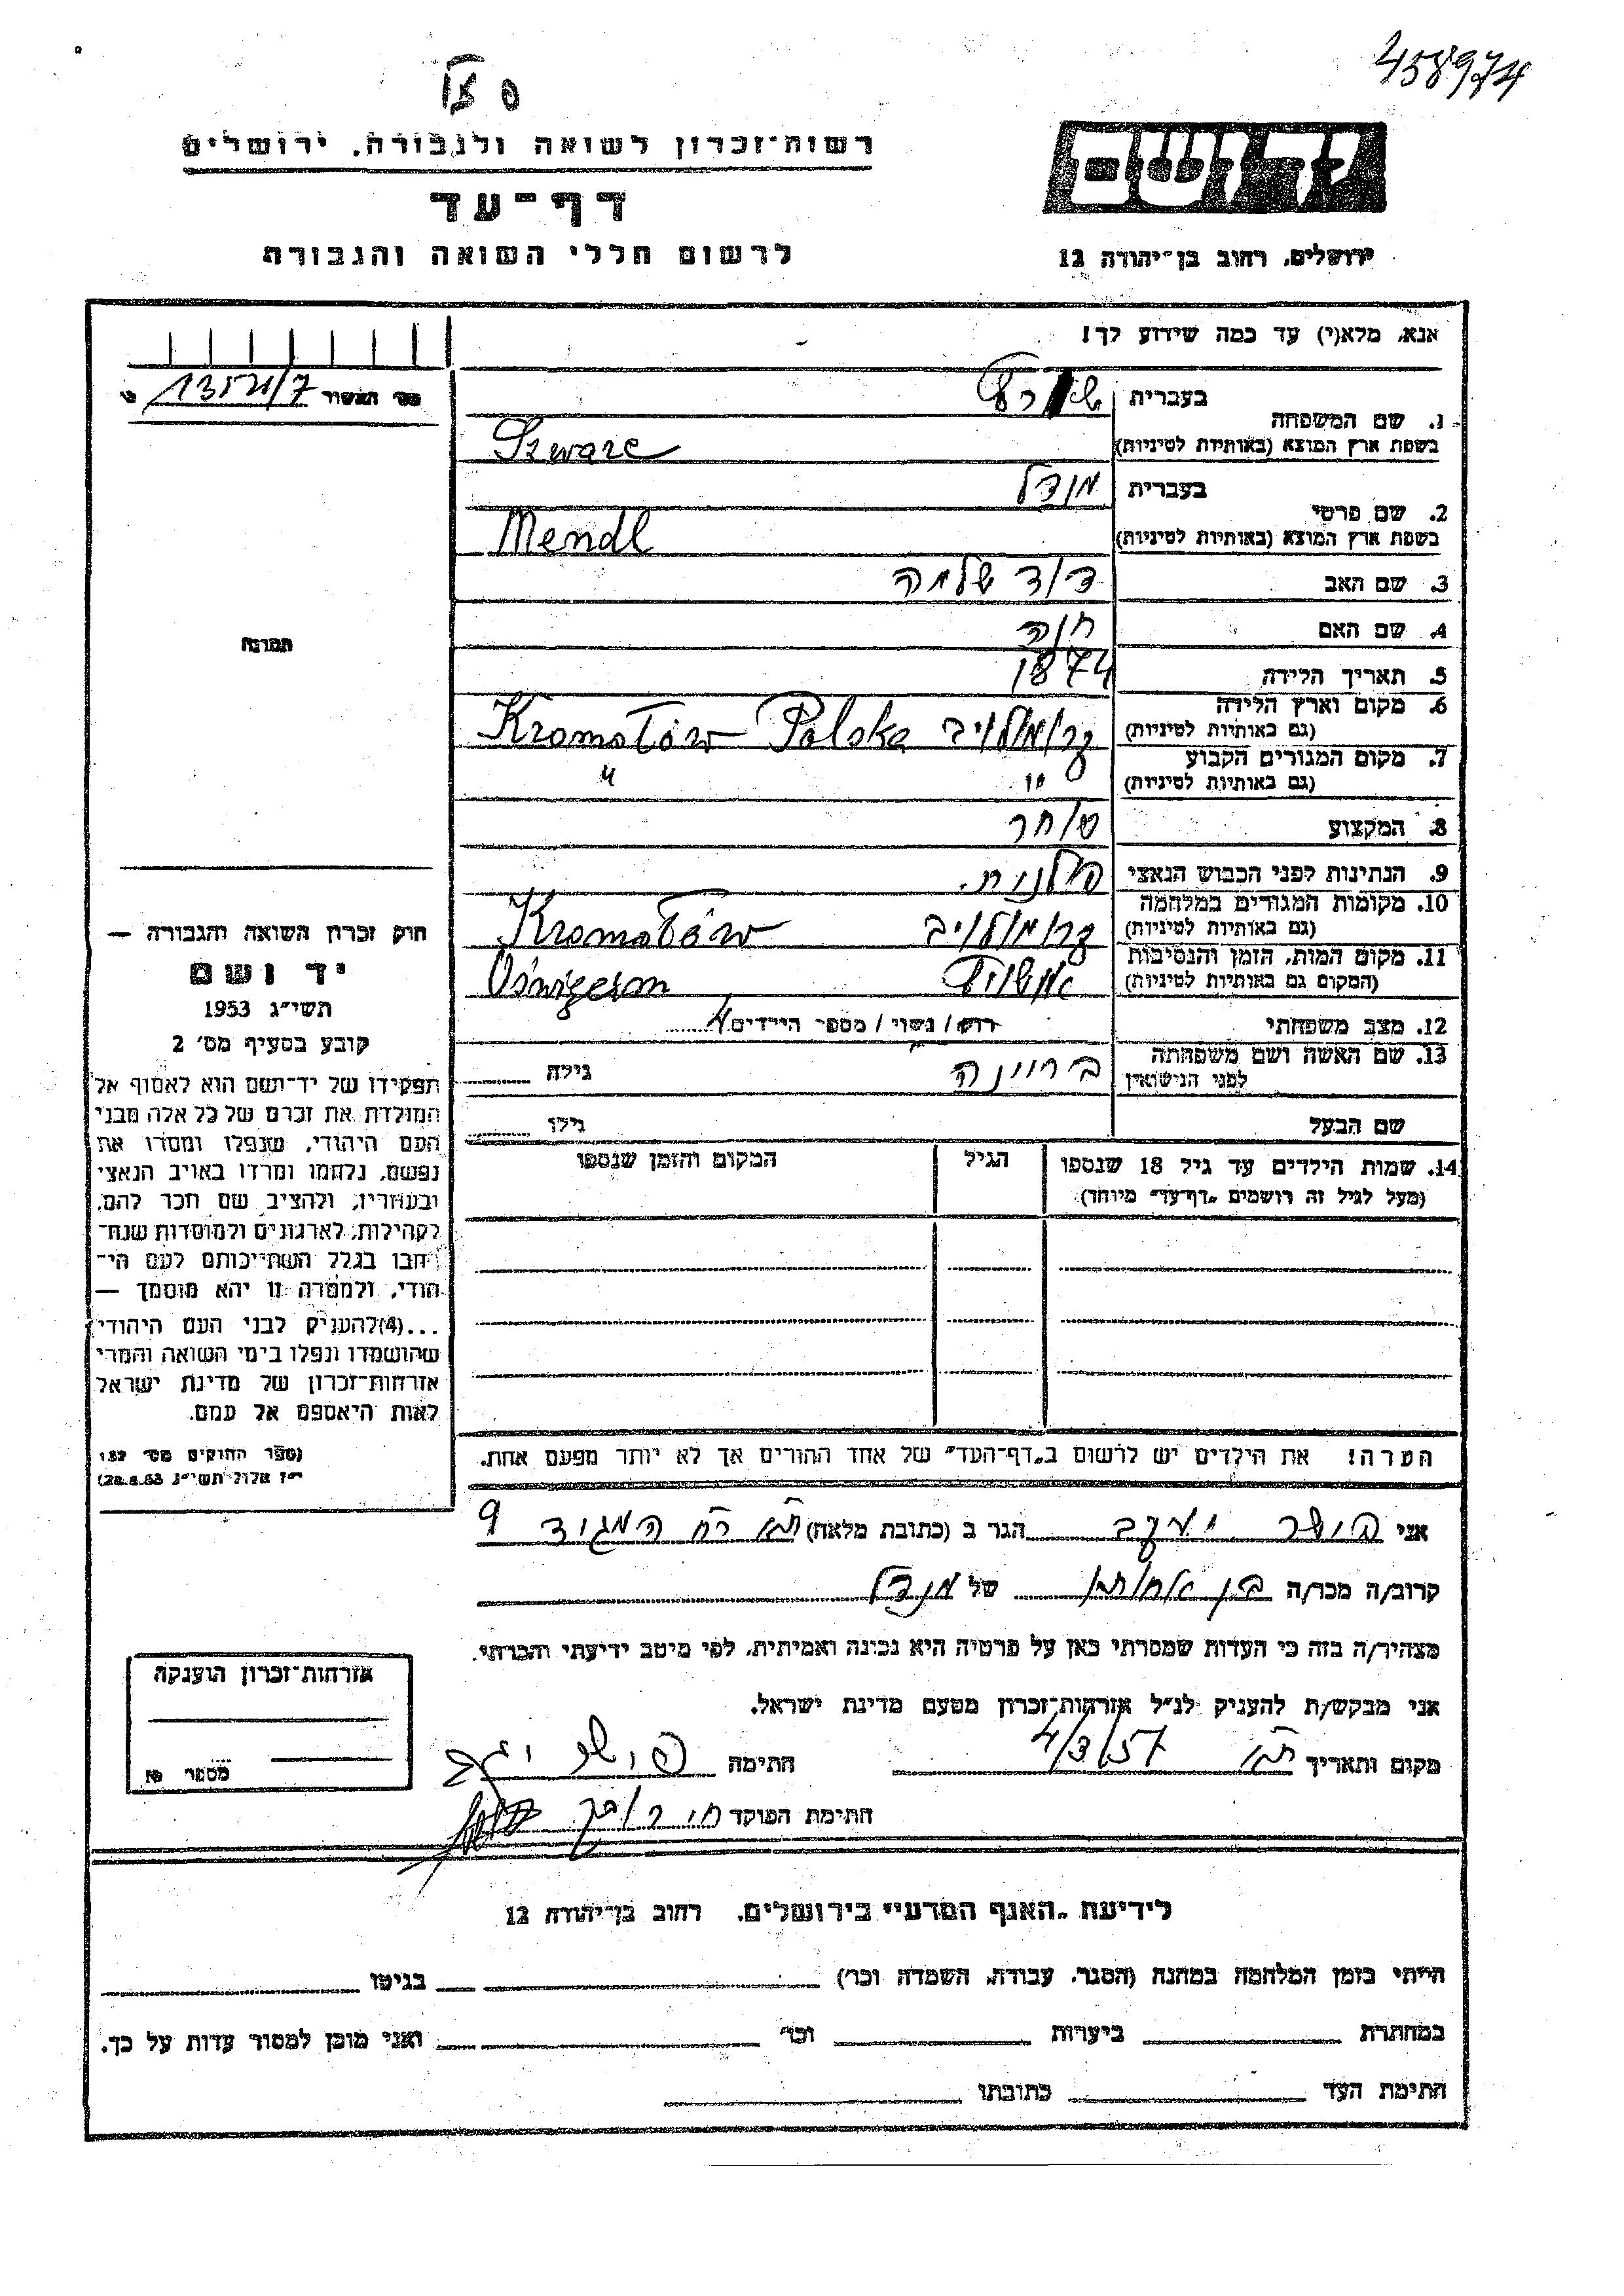 458974
רשות־זכרון לשואה ולגבורה, ירושלים
דף־עד
לרשום חללי השואה והגבורה
ירושלים, רחוב בן־יהודה 12
אנא, מלא(י) עד כמה שידוע לך!
מס׳ תאשור
1. שם המשפחה
בעברית
בשפת ארץ המוצא (באותיות לטיניות) Szwarc
2. שם פרטי
בעברית מנדל
בשפת ארץ המוצא (באותיות לטיניות) Mendl
3. שם האב דוד שלמה
4. שם האם חוה
5. תאריך הלידה 1874
6. מקום וארץ הלידה
(גם באותיות לטיניות) קרומולוב Kromołów Polska
7. מקום המגורים הקבוע
(גם באותיות לטיניות) " "
8. המקצוע סוחר
9. הנתינות לפני הכבוש הנאצי פולנית.
10. מקומות המגורים במלחמה
(גם באותיות לטיניות) קרומולוב Kromołów
11. מקום המות, הזמן והנסיבות
(המקום גם באותיות לטיניות) אושויץ
12. מצב משפחתי רוק / נשוי / מספר הילדים 4
13. שם האשה ושם משפחתה
לפני הנישואין גילה
שם הבעל גילו
14. שמות הילדים עד גיל 18 שנספו
(מעל לגיל זה רושמים „דף־עד״ מיוחד)
הגיל
המקום והזמן שנספו
תמונה
חוק זכרון השואה והגבורה —
יד ושם
תשי״ג 1953
קובע בסעיף מס׳ 2
תפקידו של יד־ושם הוא לאסוף אל
המולדת את זכרם של כל אלה מבני
העם היהודי, שנפלו ומסרו את
נפשם, נלחמו ומרדו באויב הנאצי
ובעוזריו, ולהציב שם וזכר להם,
לקהילות, לארגונים ולמוסדות שנח־
רבו בגלל השתייכותם לעם הי־
הודי, ולמטרה זו יהא מוסמך —
...(4) להעניק לבני העם היהודי
שהושמדו ונפלו בימי השואה והמרי
אזרחות־זכרון של מדינת ישראל
לאות היאספם אל עמם.
(ספר החוקים מס׳ 132
י״ז אלול תשי״ג 28.8.53)
הערה! את הילדים יש לרשום ב„דף־העד״ של אחד ההורים אך לא יותר מפעם אחת.
אני יעקב הגר ב (כתובת מלאה) המגיד 9
קרוב/ה מכר/ה בן אחותו של מנדל
מצהיר/ה בזה כי העדות שמסרתי כאן על פרטיה היא נכונה ואמיתית, לפי מיטב ידיעתי והכרתי.
אני מבקש/ת להעניק לנ״ל אזרחות־זכרון מטעם מדינת ישראל.
מקום ותאריך ת״א 4/3/57 חתימה
חתימת הפוקד
אזרחות־זכרון הוענקה
מספר
לידיעת „האגף המדעי״ בירושלים, רחוב בן־יהודה 12
הייתי בזמן המלחמה במחנה (הסגר, עבודה, השמדה וכו׳) בגיטו
במחתרת ביערות וכו׳ ואני מוכן למסור עדות על כך.
חתימת העד כתובתו